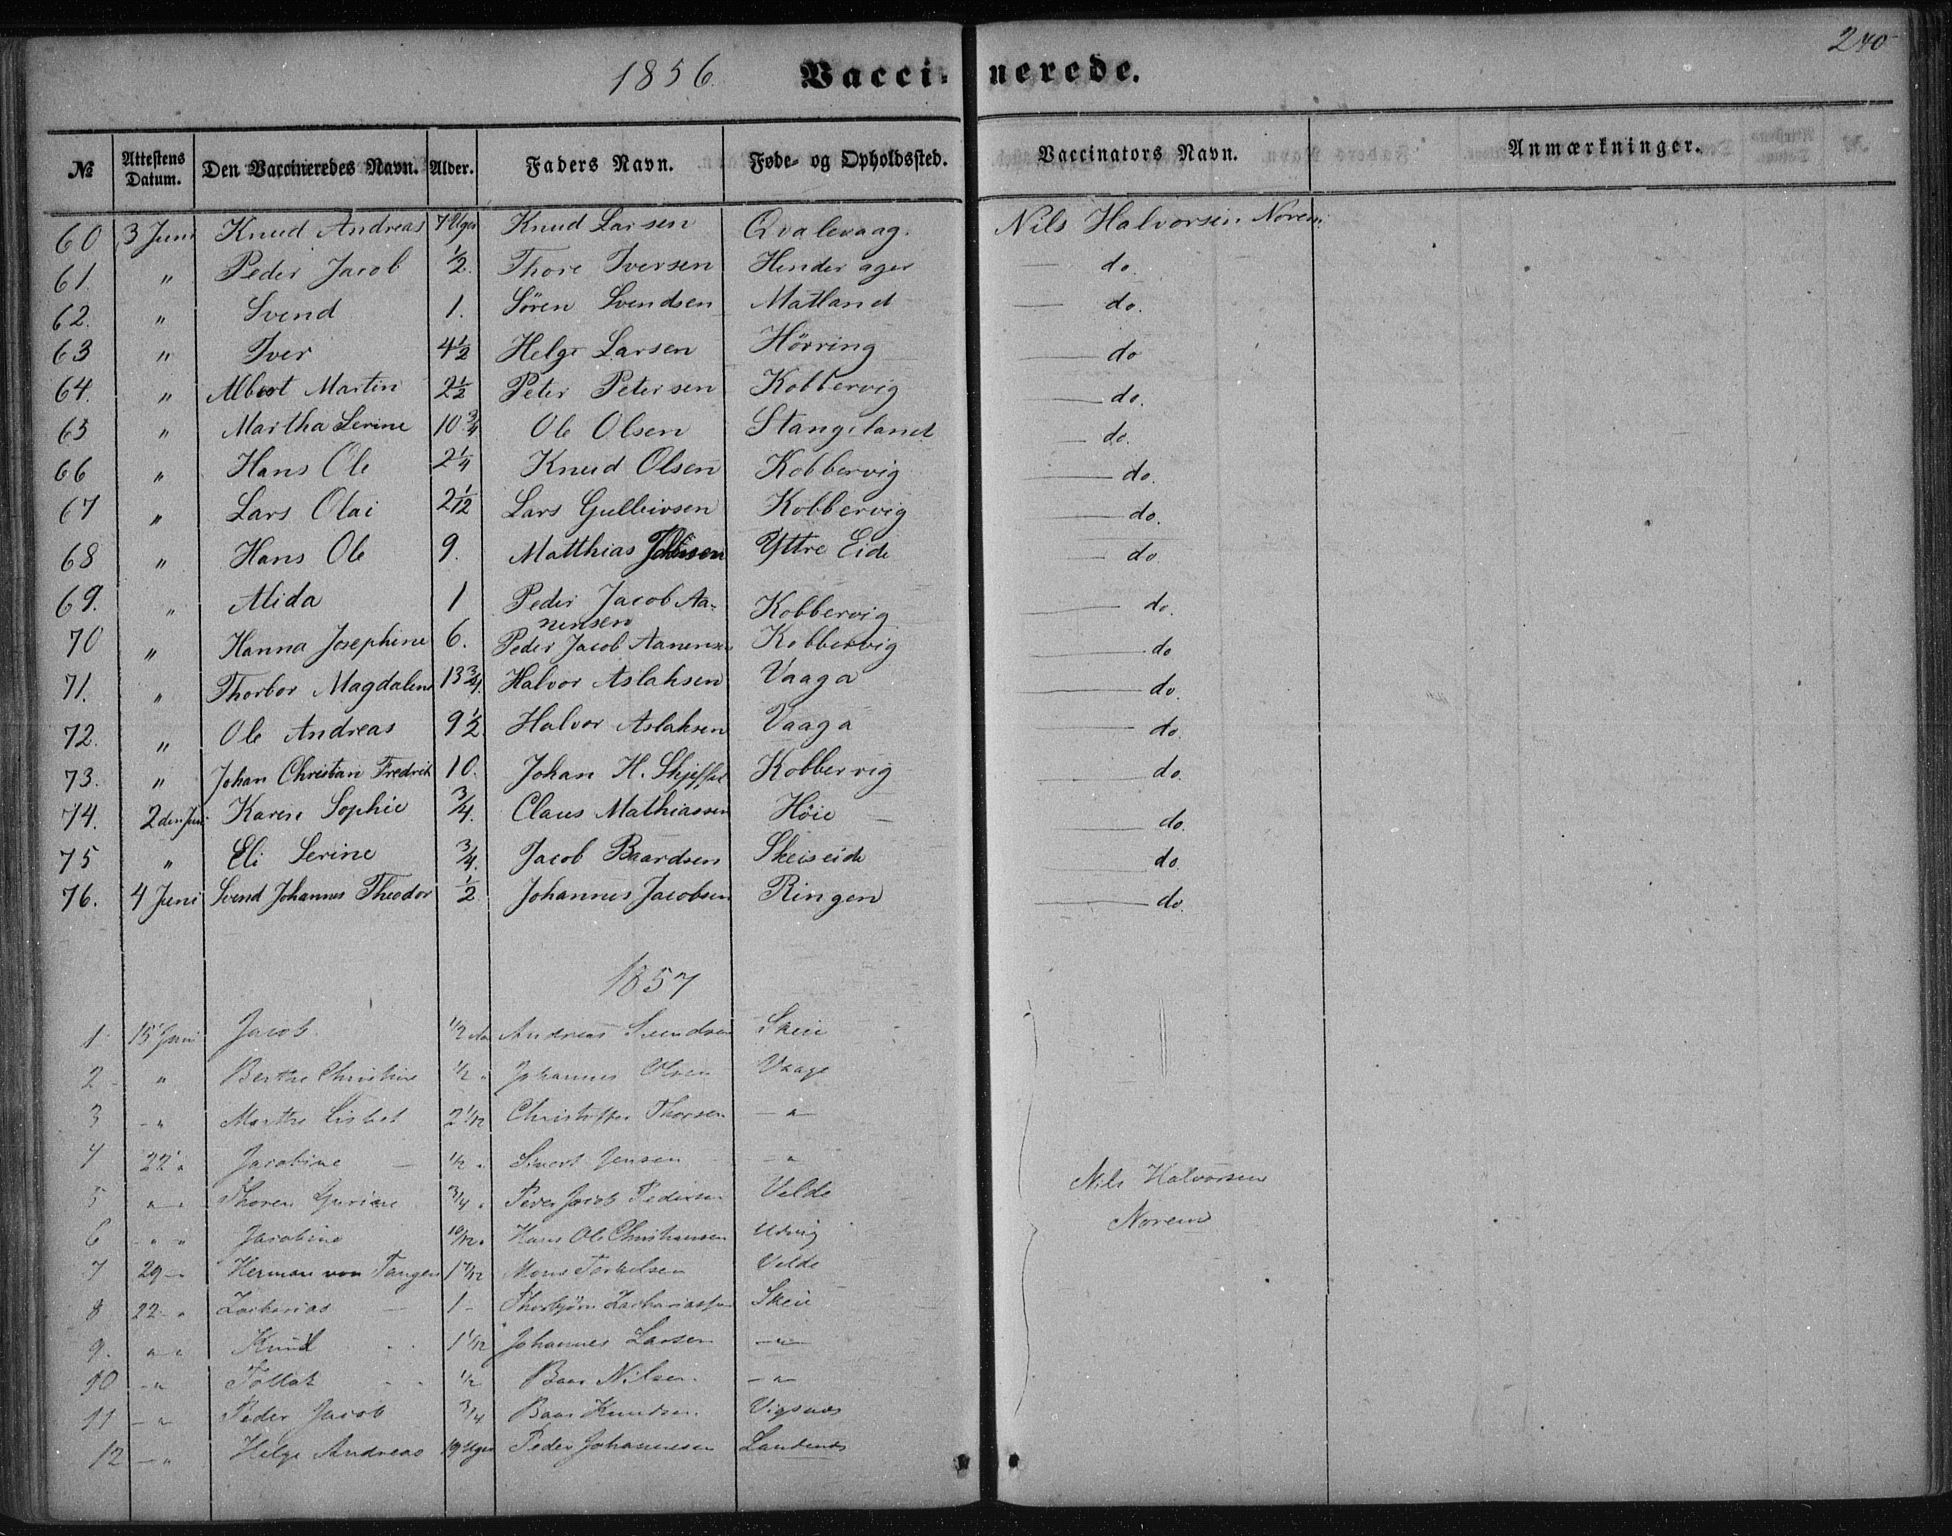 240
1856. Vaccinerede.
№ Attestens Datum. Den Vaccineredes Navn. Alder. Faders Navn. Føde- og Opholdssted. Vaccinators Navn. Anmærkninger.
60 3 Juni Knud Andreas 7 Uger Knud Larsen Qvalevaag. Nils Halvorsen Norem
61. " Peder Jacob 1/2. Thore Iversen Hinderager — do.
62. " Svend 1. Sören Svendsen Matland — do.
63 " Iver 4 1/2 Helge Larsen Hörring — do
64. " Albert Martin 2 1/2 Peter Petersen Kobbervig — do.
65 " Martha Serine 10 3/4 Ole Olsen Stangeland — do.
66 " Hans Ole 2 1/4 Knud Olsen Kobbervig — do.
67 " Lars Olai 2 1/12 Lars Gulleivsen Kobbervig — do.
68 " Hans Ole 9. Matthias Yttre Eide — do
69. " Alida 1 Peder Jacob Aa-
nensen Kobbervig — do.
70 " Hanna Josephine 6. Peder Jacob Aanensen Kobbervig — do
71. " Thorbor Magdalene 13 3/4. Halvor Aslaksen Vaaga — do.
72. " Ole Andreas 9 1/2 Halvor Aslaksen Vaaga — do.
73. " Johan Christian Fredrik 10. Johan H. Kobbervig — do.
74. 2den Juni Karen Sophie 3/4. Claus Mathiassen Höie — do.
75 " Eli Serine 3/4. Jacob Baardsen Skeiseide — do.
76. 4 Juni Svend Johannes Theodor 1/2 Johannes Jacobsen Ringen — do.
1857
1 15 Juni Jacob 1/2 Andreas Svendsen Skeie
2 " Berthe Christine 1/2 " Johannes Olsen Vaage
3 - " Marthe Lisbet 2 1/12 Christoffer Thorsen — " —
4 22 " Jacobine — 1/2 " Sivert Jensen — "
5 " " Thoren Guriane 3/4 " Peder Jacob Pedersen Velde
6 " " Jacobine 10/12 " Hans Ole Christiansen Udvig
7 29 — Herman von Tangen 1 7/12 Mons Torkelsen Velde
8 22 " Zacharias — 1 - Thorbjörn Zachariassen Skeie
9. " " Knud 1 1/12 Johannes Larsen — " —
10 - " Tollak 1/2 Baar Nilsen — " —
11 - " Peder Jacob 3/4 Baar Knudsen. Vigsnæs
12 - " Helge Andreas 19 Uger Peder Johannesen Sandenæs
Nils Halvorsen
Norem